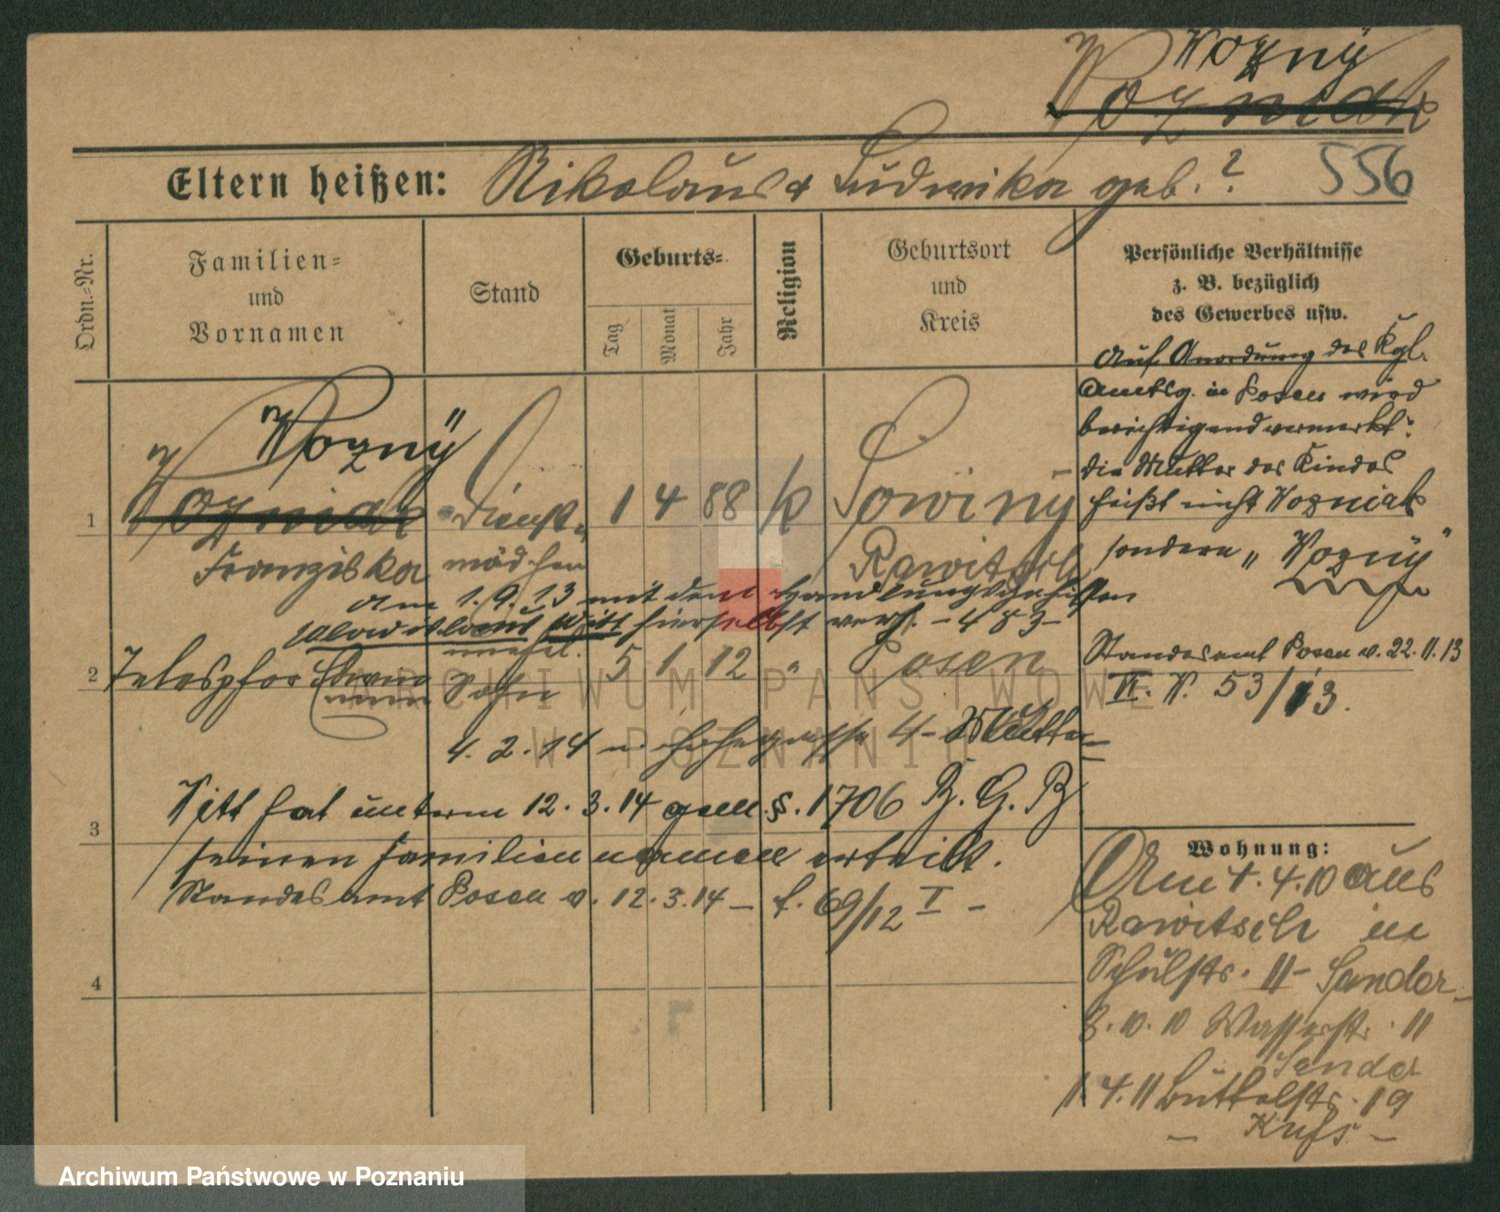 Wozny
Wozniak
Eltern heißen: Nikolaus & Ludwika geb. ? 556
Ordn.-Nr.
Familien-
und
Vornamen
Stand
Geburts-
Tag
Monat
Jahr
Religion
Geburtsort
und
Kreis
Persönliche Verhältnisse
z. B. bezüglich
des Gewerbes usw.
Auf Anordnung des Kgl.
Amtsg. in Posen wird
berichtigend vermerkt:
die Mutter des Kindes
heißt nicht Wozniak
sondern „Wozny"
Standesamt Posen v. 22.11.13
VI. N. 53/13.
Wozny
1 Wozniak Dienst- 1 4 88 k Sowiny
Franziska mädchen Rawitsch
am 1.9.13 mit dem Handlungsgehilfen
Witt hierselbst verh. - 483 -
unehel.
2 Telesphor Sohn 5 1 12 " Posen
4.2.14 4 - Mutter
3 Witt hat unterm 12.3.14 gem. §. 1706 B.G.B
seinen Familiennamen erteilt.
Standesamt Posen v. 12.3.14 - f. 69/12 I -
4
Wohnung:
Am 1.4.10 aus
Rawitsch in
Schulstr. 11 - Sander -
3.10.10 Wasserstr. 11
Sander
1 4.11 Büttelstr. 19
ARCHIWUM PAŃSTWOWE
W POZNANIU
Archiwum Państwowe w Poznaniu